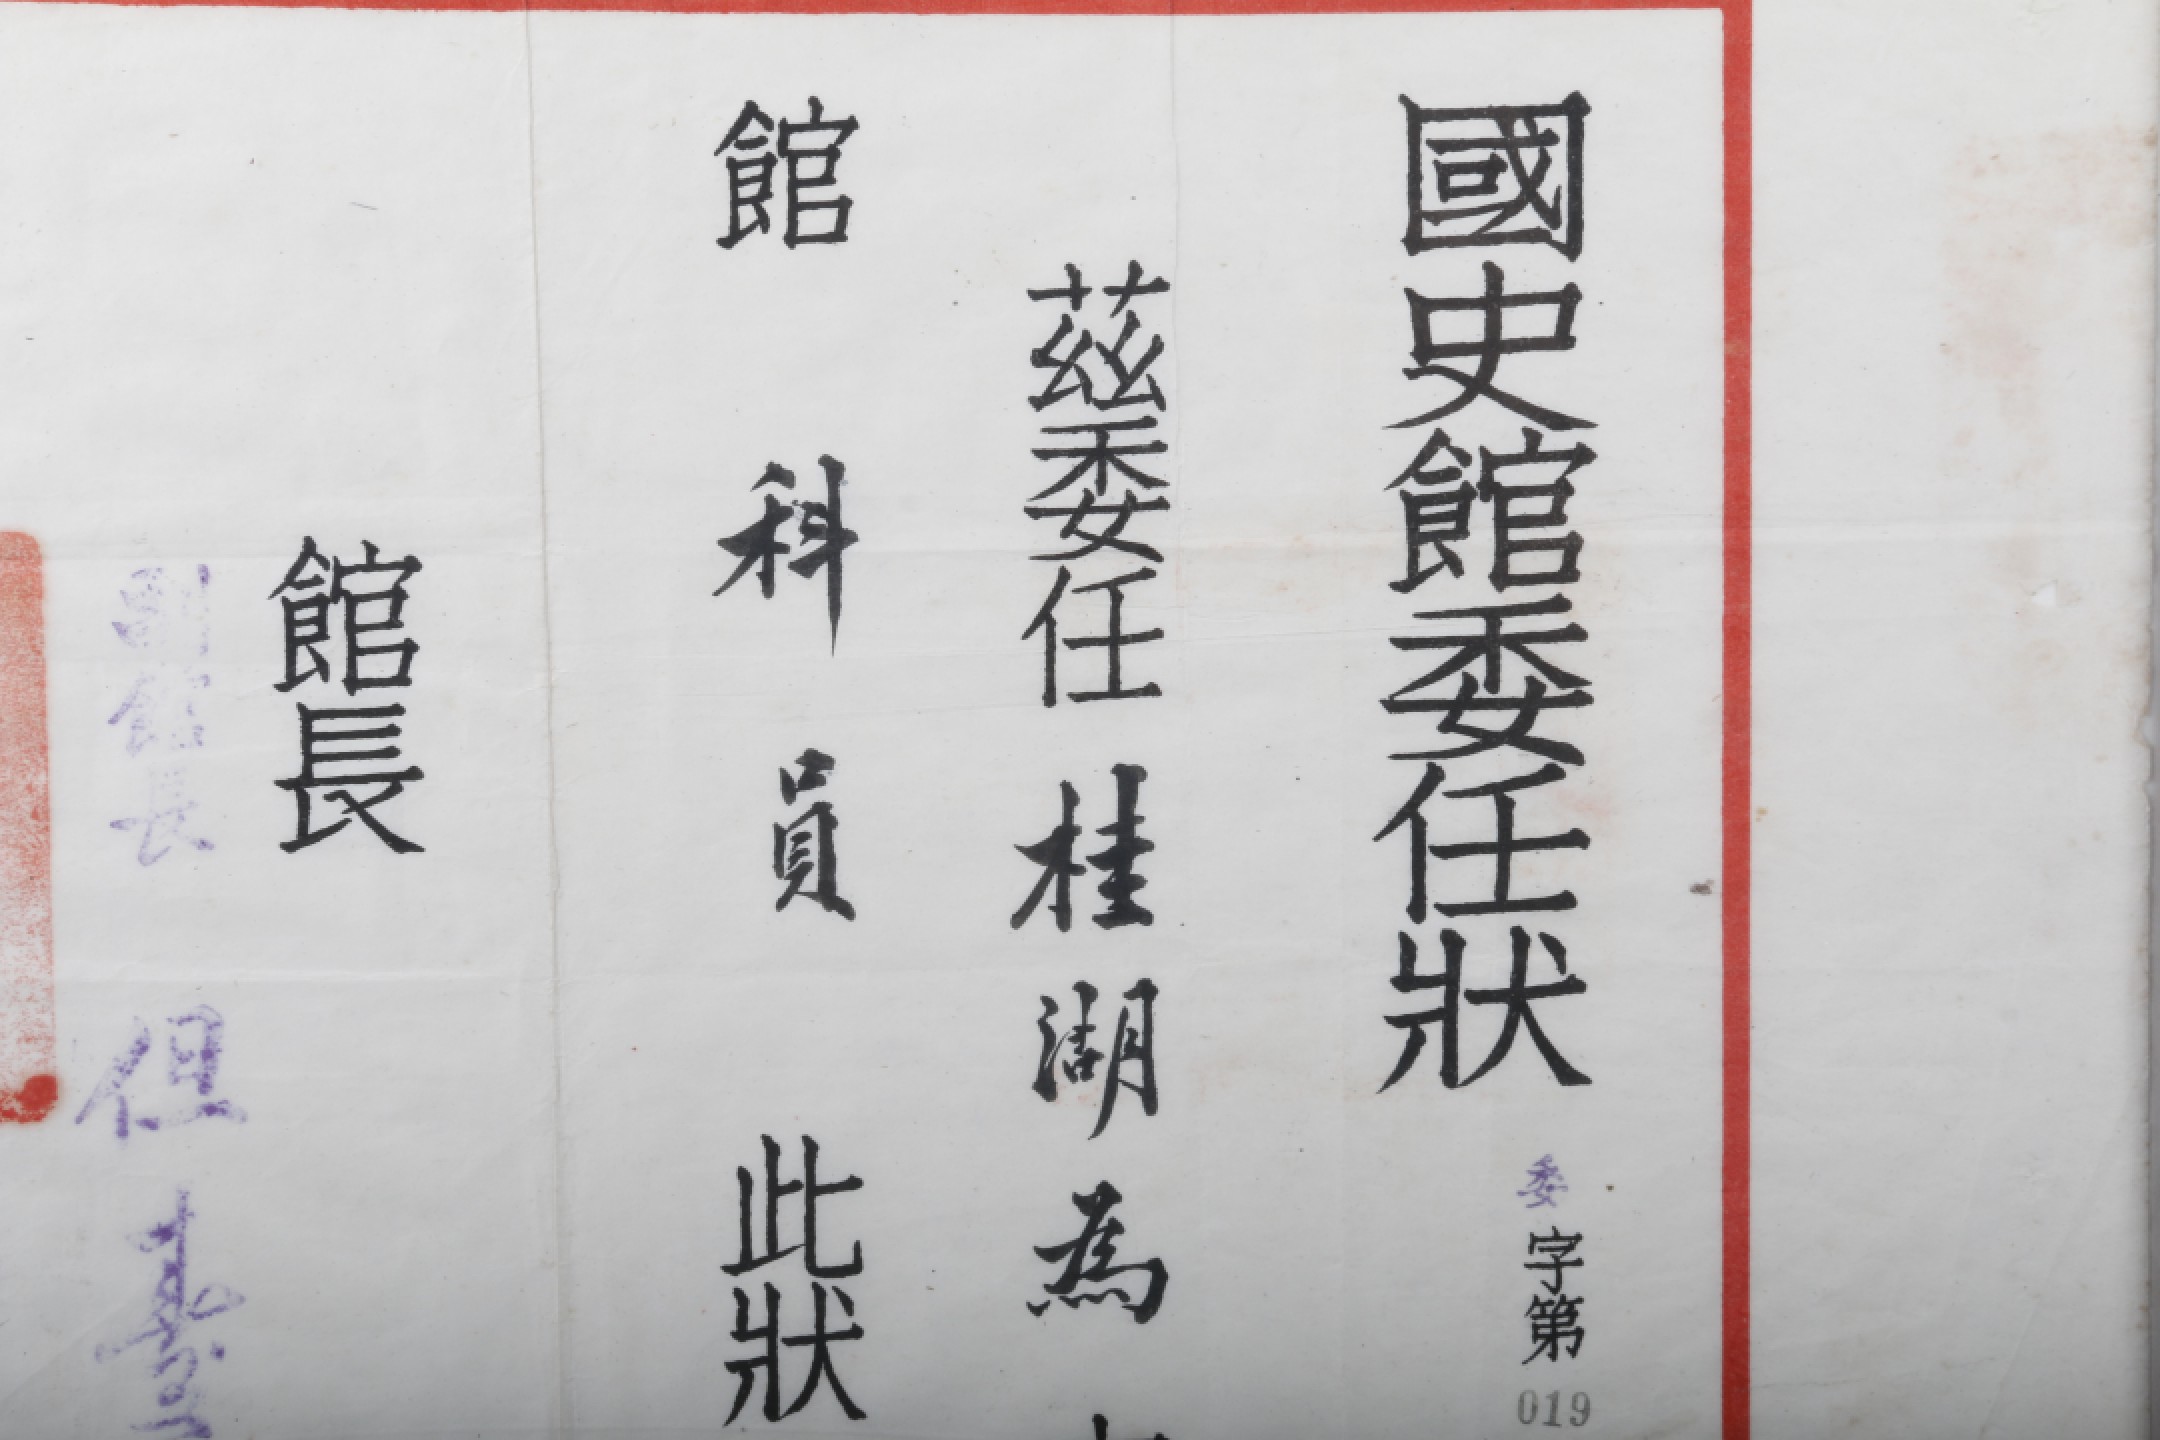 國史館委任狀
委字第019
茲委任桂湖為
館科員此狀
館長
副館長但